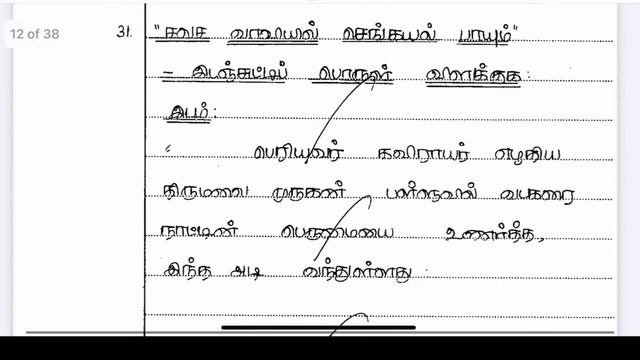 12 of 38
31. "சலச வாவியில் செங்கயல் பாயும்"
– இடஞ்சுட்டிப் பொருள் விளக்குக:
இடம்:
பெரியவர் கவிராயர் எழுதிய
திருமலை முருகன் பள்ளுவில் வடகரை
நாட்டின் பெருமையை உணர்த்த,
இந்த அடி வந்துள்ளது.